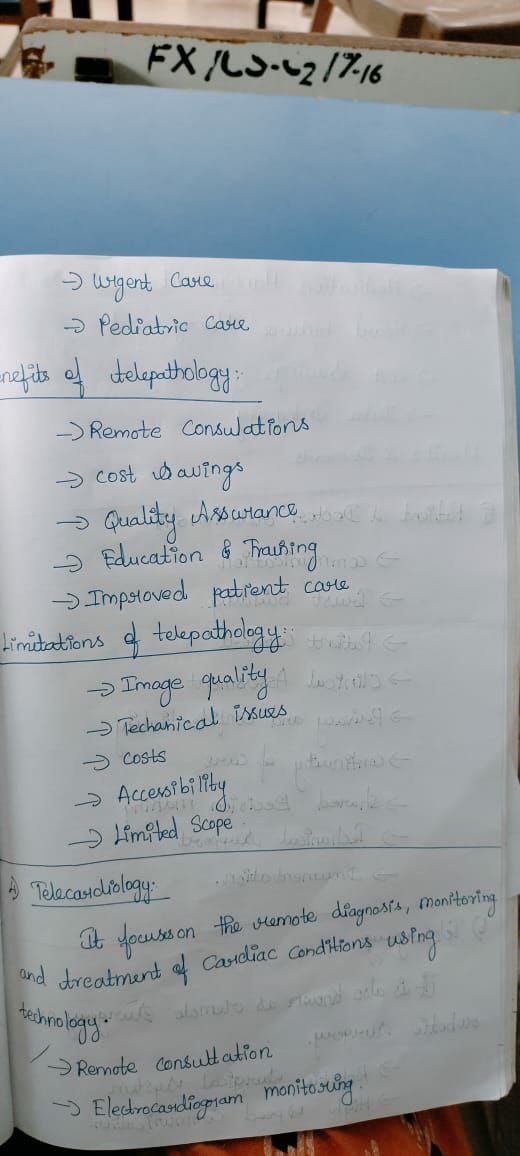 → Urgent Care
→ Pediatric Care
nefits of telepathology:
→ Remote Consulations
→ Cost Savings
→ Quality Assurance
→ Education & Training
→ Improved patient care
Limitations of telepathology:
→ Image quality
→ Techanical issues
→ Costs
→ Accessibility
→ Limited Scope
Telecardiology:
It focuses on the remote diagnosis, monitoring
and treatment of Cardiac Conditions using
technology.
→ Remote consultation
→ Electrocardiogram monitoring.